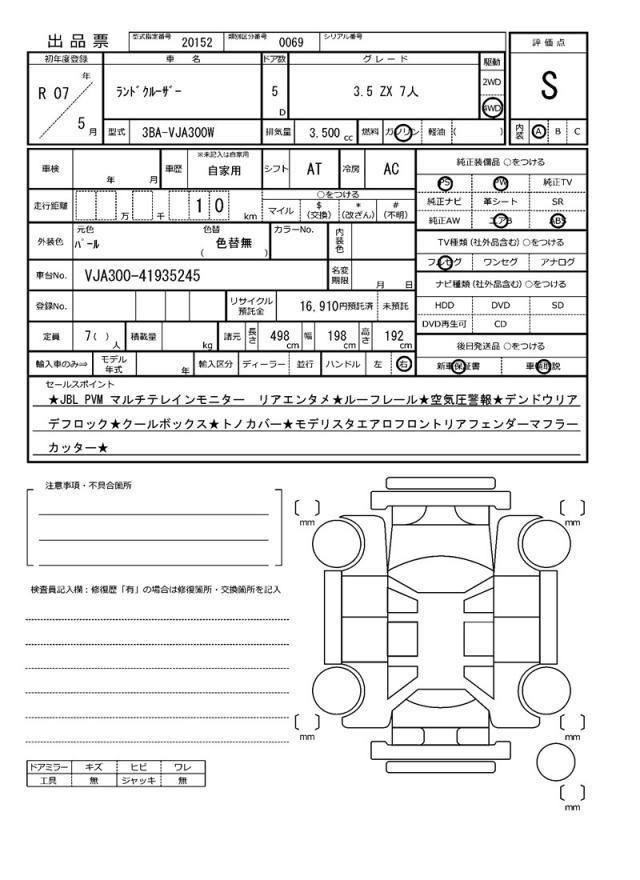 出品票 型式指定番号 20152 類別区分番号 0069 シリアル番号
初年度登録 車名 ドア数 グレード 駆動 評価点
R 07 年 5 月 ﾗﾝﾄﾞｸﾙｰｻﾞｰ 5 D 3.5 ZX 7人 2WD 4WD S
型式 3BA-VJA300W 排気量 3.500 cc 燃料 ガソリン 軽油 ( ) 内装 A B C
車検 年 月 車歴 ※未記入は自家用 自家用 シフト AT 冷房 AC
走行距離 万 千 1 0 km ○をつける マイル $ (交換) * (改ざん) # (不明)
外装色 元色 ﾊﾟｰﾙ 色替 色替無 ( ) カラーNo. 内装色
車台No. VJA300-41935245 名変期限 月 日
登録No. リサイクル預託金 16,910円預託済 未預託
定員 7( ) 人 積載量 kg 諸元 長さ 498 cm 幅 198 cm 高さ 192 cm
輸入車のみ⇒ モデル年式 年 輸入区分 ディーラー 並行 ハンドル 左 右
純正装備品 ○をつける
PS PW 純正TV
純正ナビ 革シート SR
純正AW エアB ABS
TV種類 (社外品含む) ○をつける
フルセグ ワンセグ アナログ
ナビ種類 (社外品含む) ○をつける
HDD DVD SD
DVD再生可 CD
後日発送品 ○をつける
新車保証書 車輌取説
セールスポイント
★JBL PVM マルチテレインモニター リアエンタメ★ルーフレール★空気圧警報★デンドウリア
デフロック★クールボックス★トノカバー★モデリスタエアロフロントリアフェンダーマフラー
カッター★
注意事項・不具合箇所
検査員記入欄：修復歴「有」の場合は修復箇所・交換箇所を記入
ドアミラー キズ ヒビ ワレ
工具 無 ジャッキ 無
mm
mm
mm
mm
mm